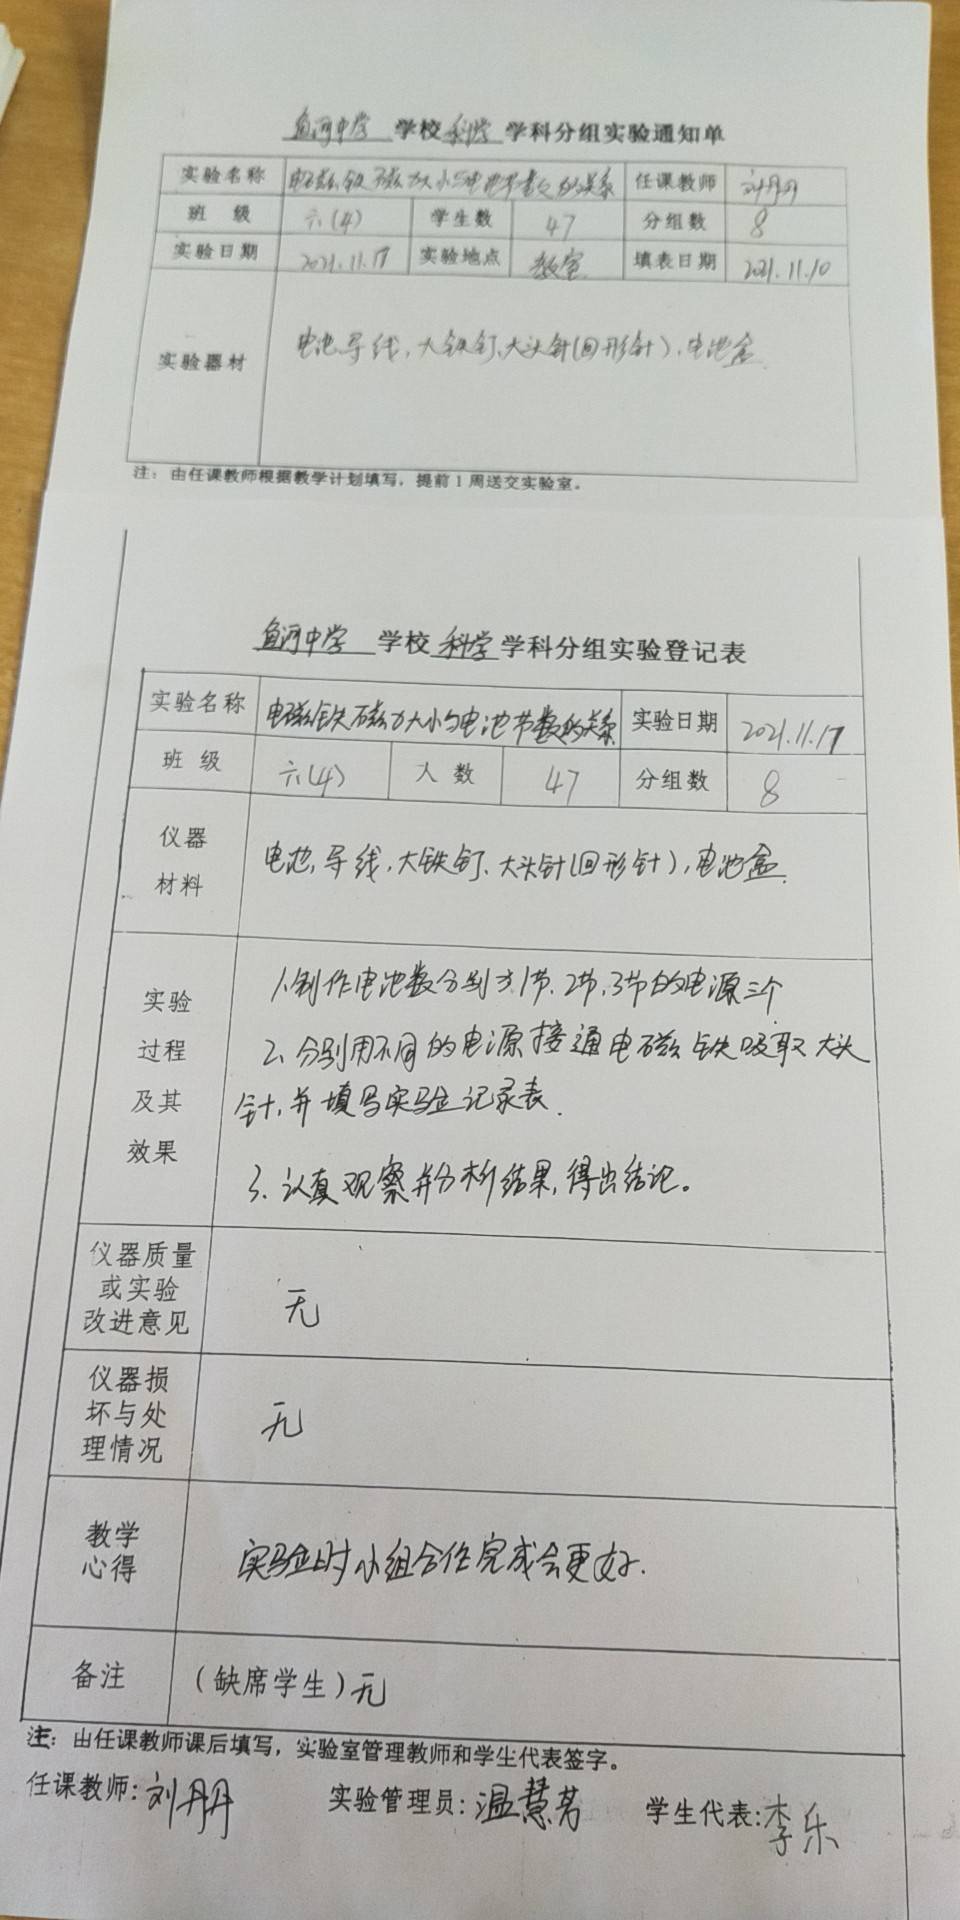 鱼河中学 学校 科学 学科分组实验通知单
实验名称 电磁铁磁力大小与电池节数的关系 任课教师 刘丹丹
班 级 六(4) 学生数 47 分组数 8
实验日期 2021.11.17 实验地点 教室 填表日期 2021.11.10
实验器材 电池,导线,大铁钉、大头针(回形针),电池盒.
注:由任课教师根据教学计划填写,提前1周送交实验室。
鱼河中学 学校 科学 学科分组实验登记表
实验名称 电磁铁磁力大小与电池节数的关系 实验日期 2021.11.17
班 级 六(4) 人 数 47 分组数 8
仪器
材料
电池,导线,大铁钉、大头针(回形针),电池盒.
实验
过程
及其
效果
1.制作电池数分别为1节、2节、3节的电源三个
2、分别用不同的电源接通电磁铁吸取大头
针,并填写实验记录表.
3、认真观察并分析结果,得出结论。
仪器质量
或实验
改进意见
无
仪器损
坏与处
理情况
无
教学
心得
实验时小组合作完成会更好.
备注 (缺席学生)无
注:由任课教师课后填写,实验室管理教师和学生代表签字。
任课教师:刘丹丹 实验管理员:温慧芳 学生代表:李乐